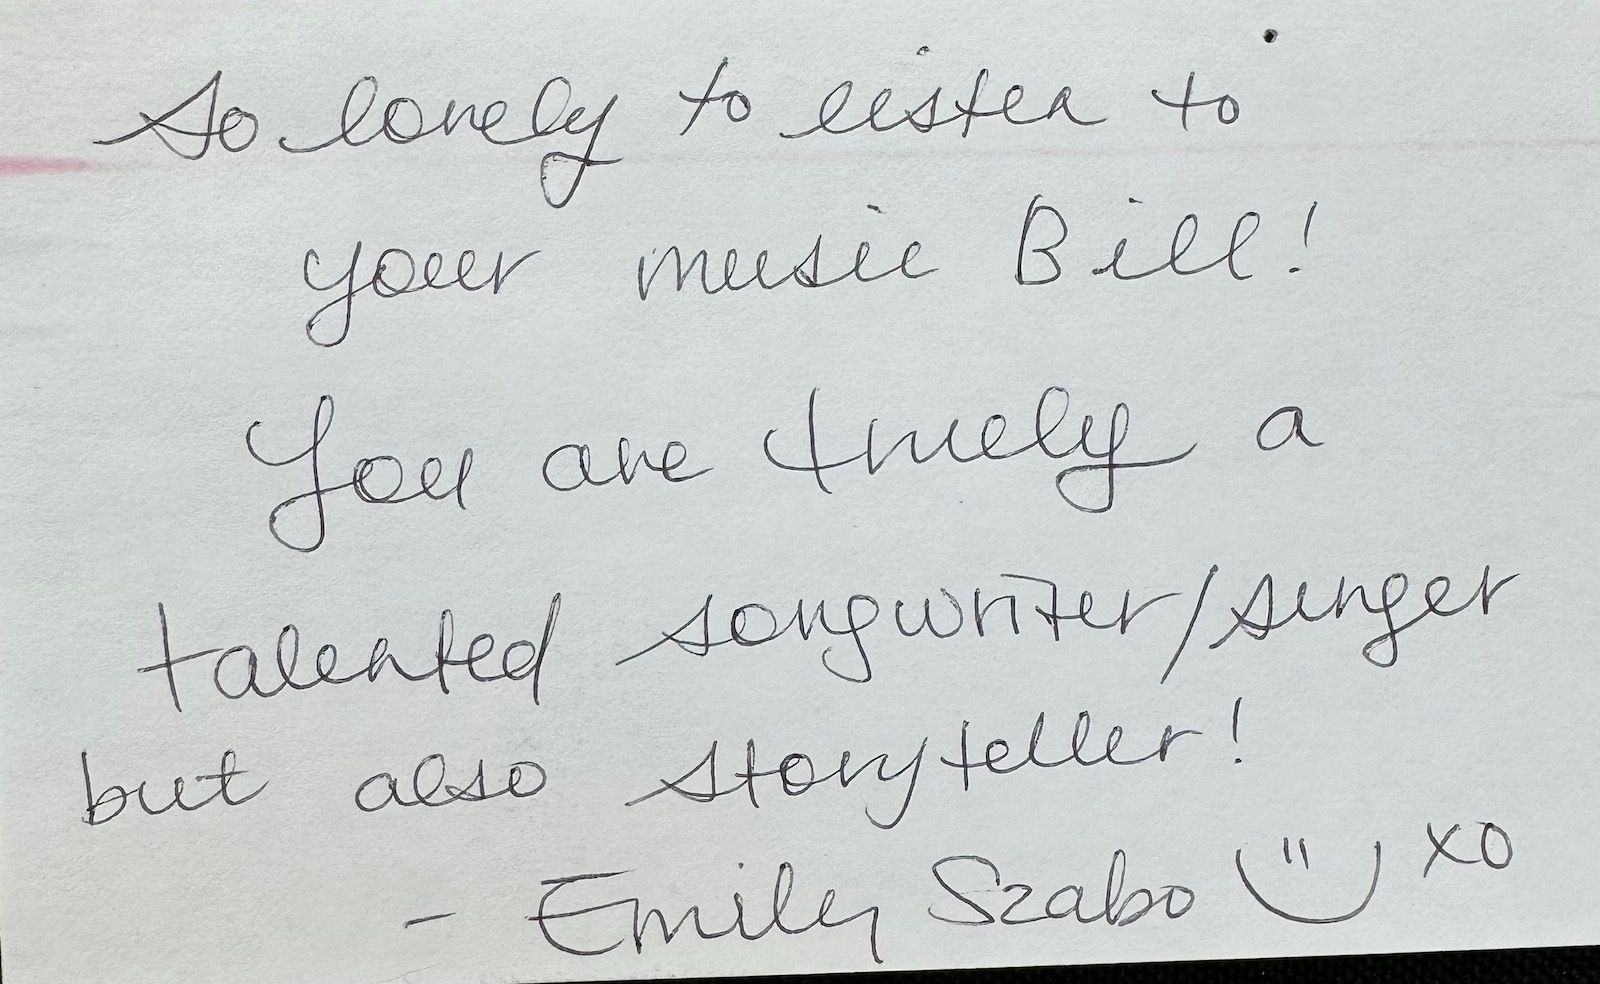 So lovely to listen to
your music Bill!
You are truely a
talented songwriter/singer
but also storyteller!
- Emily Szabo xo